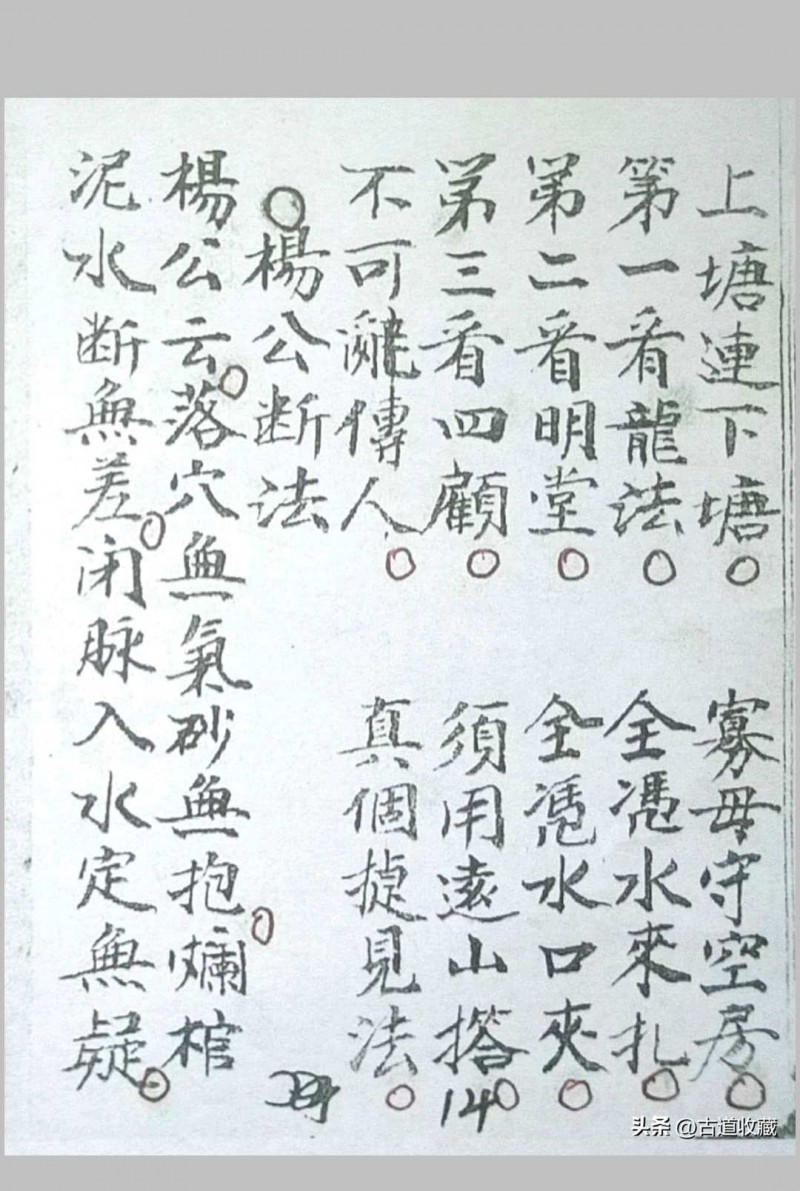 上塘連下塘○ 寡母守空房○
第一看龍法○ 全憑水來扎○
第二看明堂○ 全憑水口夾○
第三看四顧○ 須用遠山搭○
不可亂傳人○ 真個捷見法○
○楊公断法
楊公云○落穴無氣砂無抱○爛棺
泥水断無差○闭脉入水定無疑○
14
头条 @古道收藏